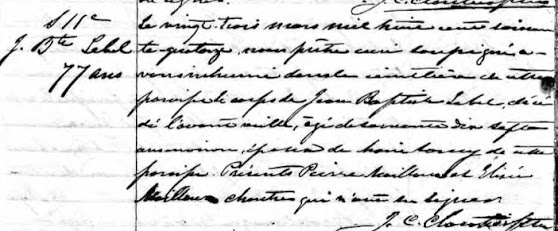 S 11e
J. Bte Lebel
77 ans
Le vingt trois mars mil huit cent soixan
te quatorze, nous prêtre curé soussigné a-
vons inhumé dans le cimetière de cette
paroisse le corps de Jean Baptiste Lebel, décé
dé l'avant veille, âgé de soixante dix sept
ans environ, époux de
de cette
paroisse. Présents Pierre Mailloux et Elisée
Mailloux chantres qui n'ont su signer
J. C. Cloutier Ptre